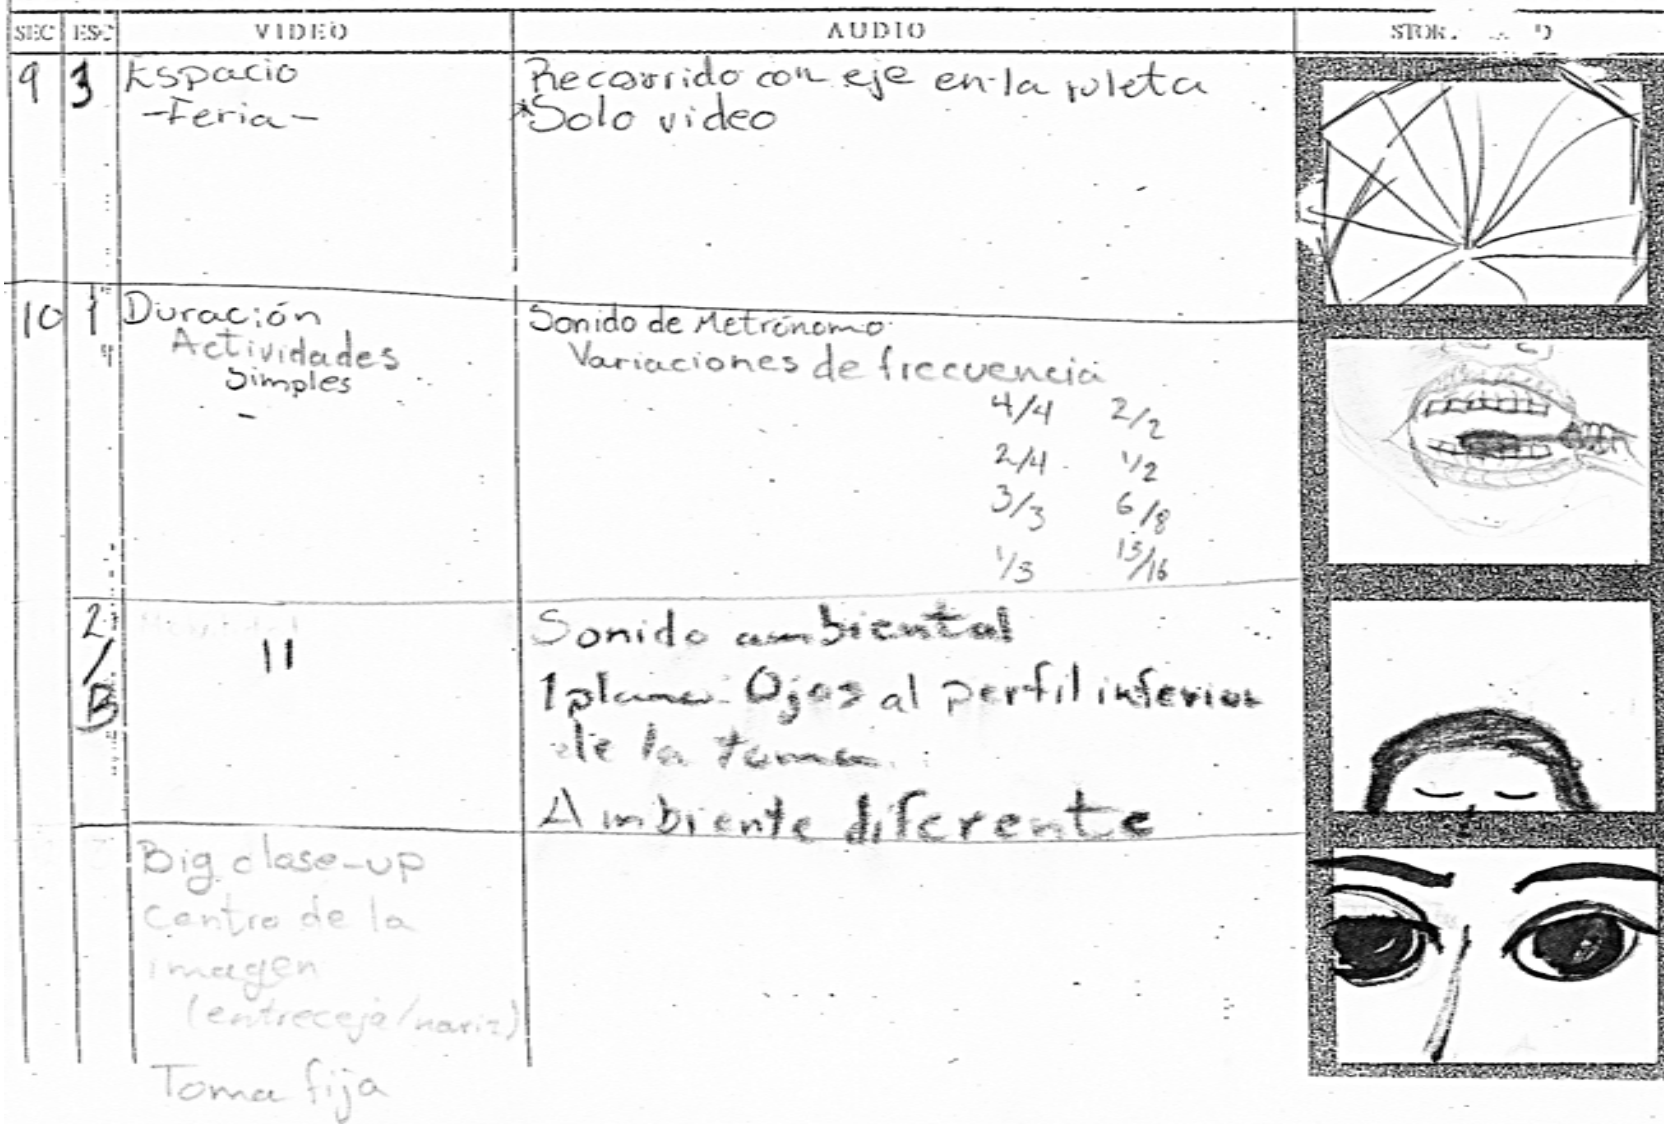 SEC ESC VIDEO AUDIO
9 3 Espacio Recorrido con eje en la ruleta
-Feria- *Solo video
10 1 Duración Sonido de Metrónomo
Actividades Variaciones de frecuencia
Simples
4/4 2/2
2/4 1/2
3/3 6/8
1/3 15/16
2/B 11 Sonido ambiental
1 plano: Ojos al perfil inferior
de la toma
Ambiente diferente
Big close-up
Centro de la
imagen
(entreceja/nariz)
Toma fija